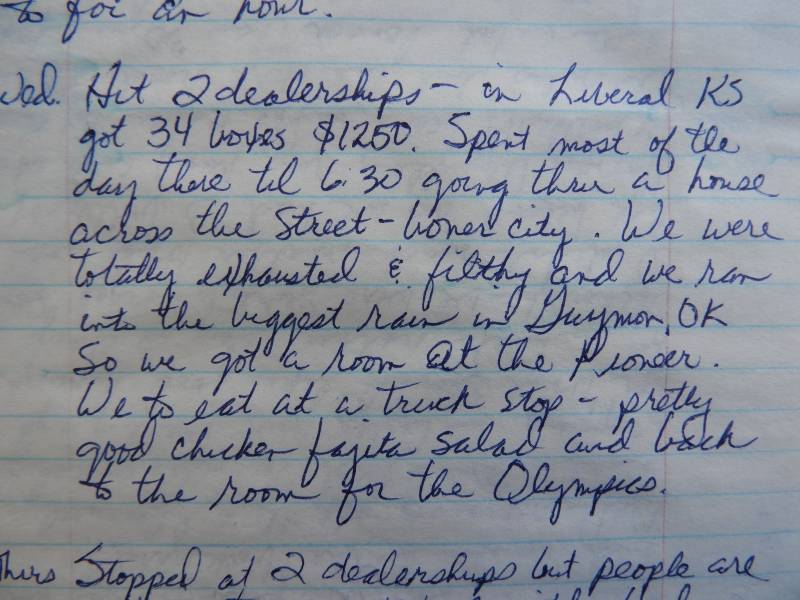 to for an hour.
Wed. Hit 2 dealerships - in Liveral KS
got 34 boxes $1250. Spent most of the
day there til 6:30 going thru a house
across the Street - boner city. We were
totally exhausted & filthy and we ran
into the biggest rain in Guymon, OK
So we got a room at the Pioneer.
We to eat at a truck stop - pretty
good chicken fajita salad and back
to the room for the Olympics.
Thurs Stopped at 2 dealerships but people are